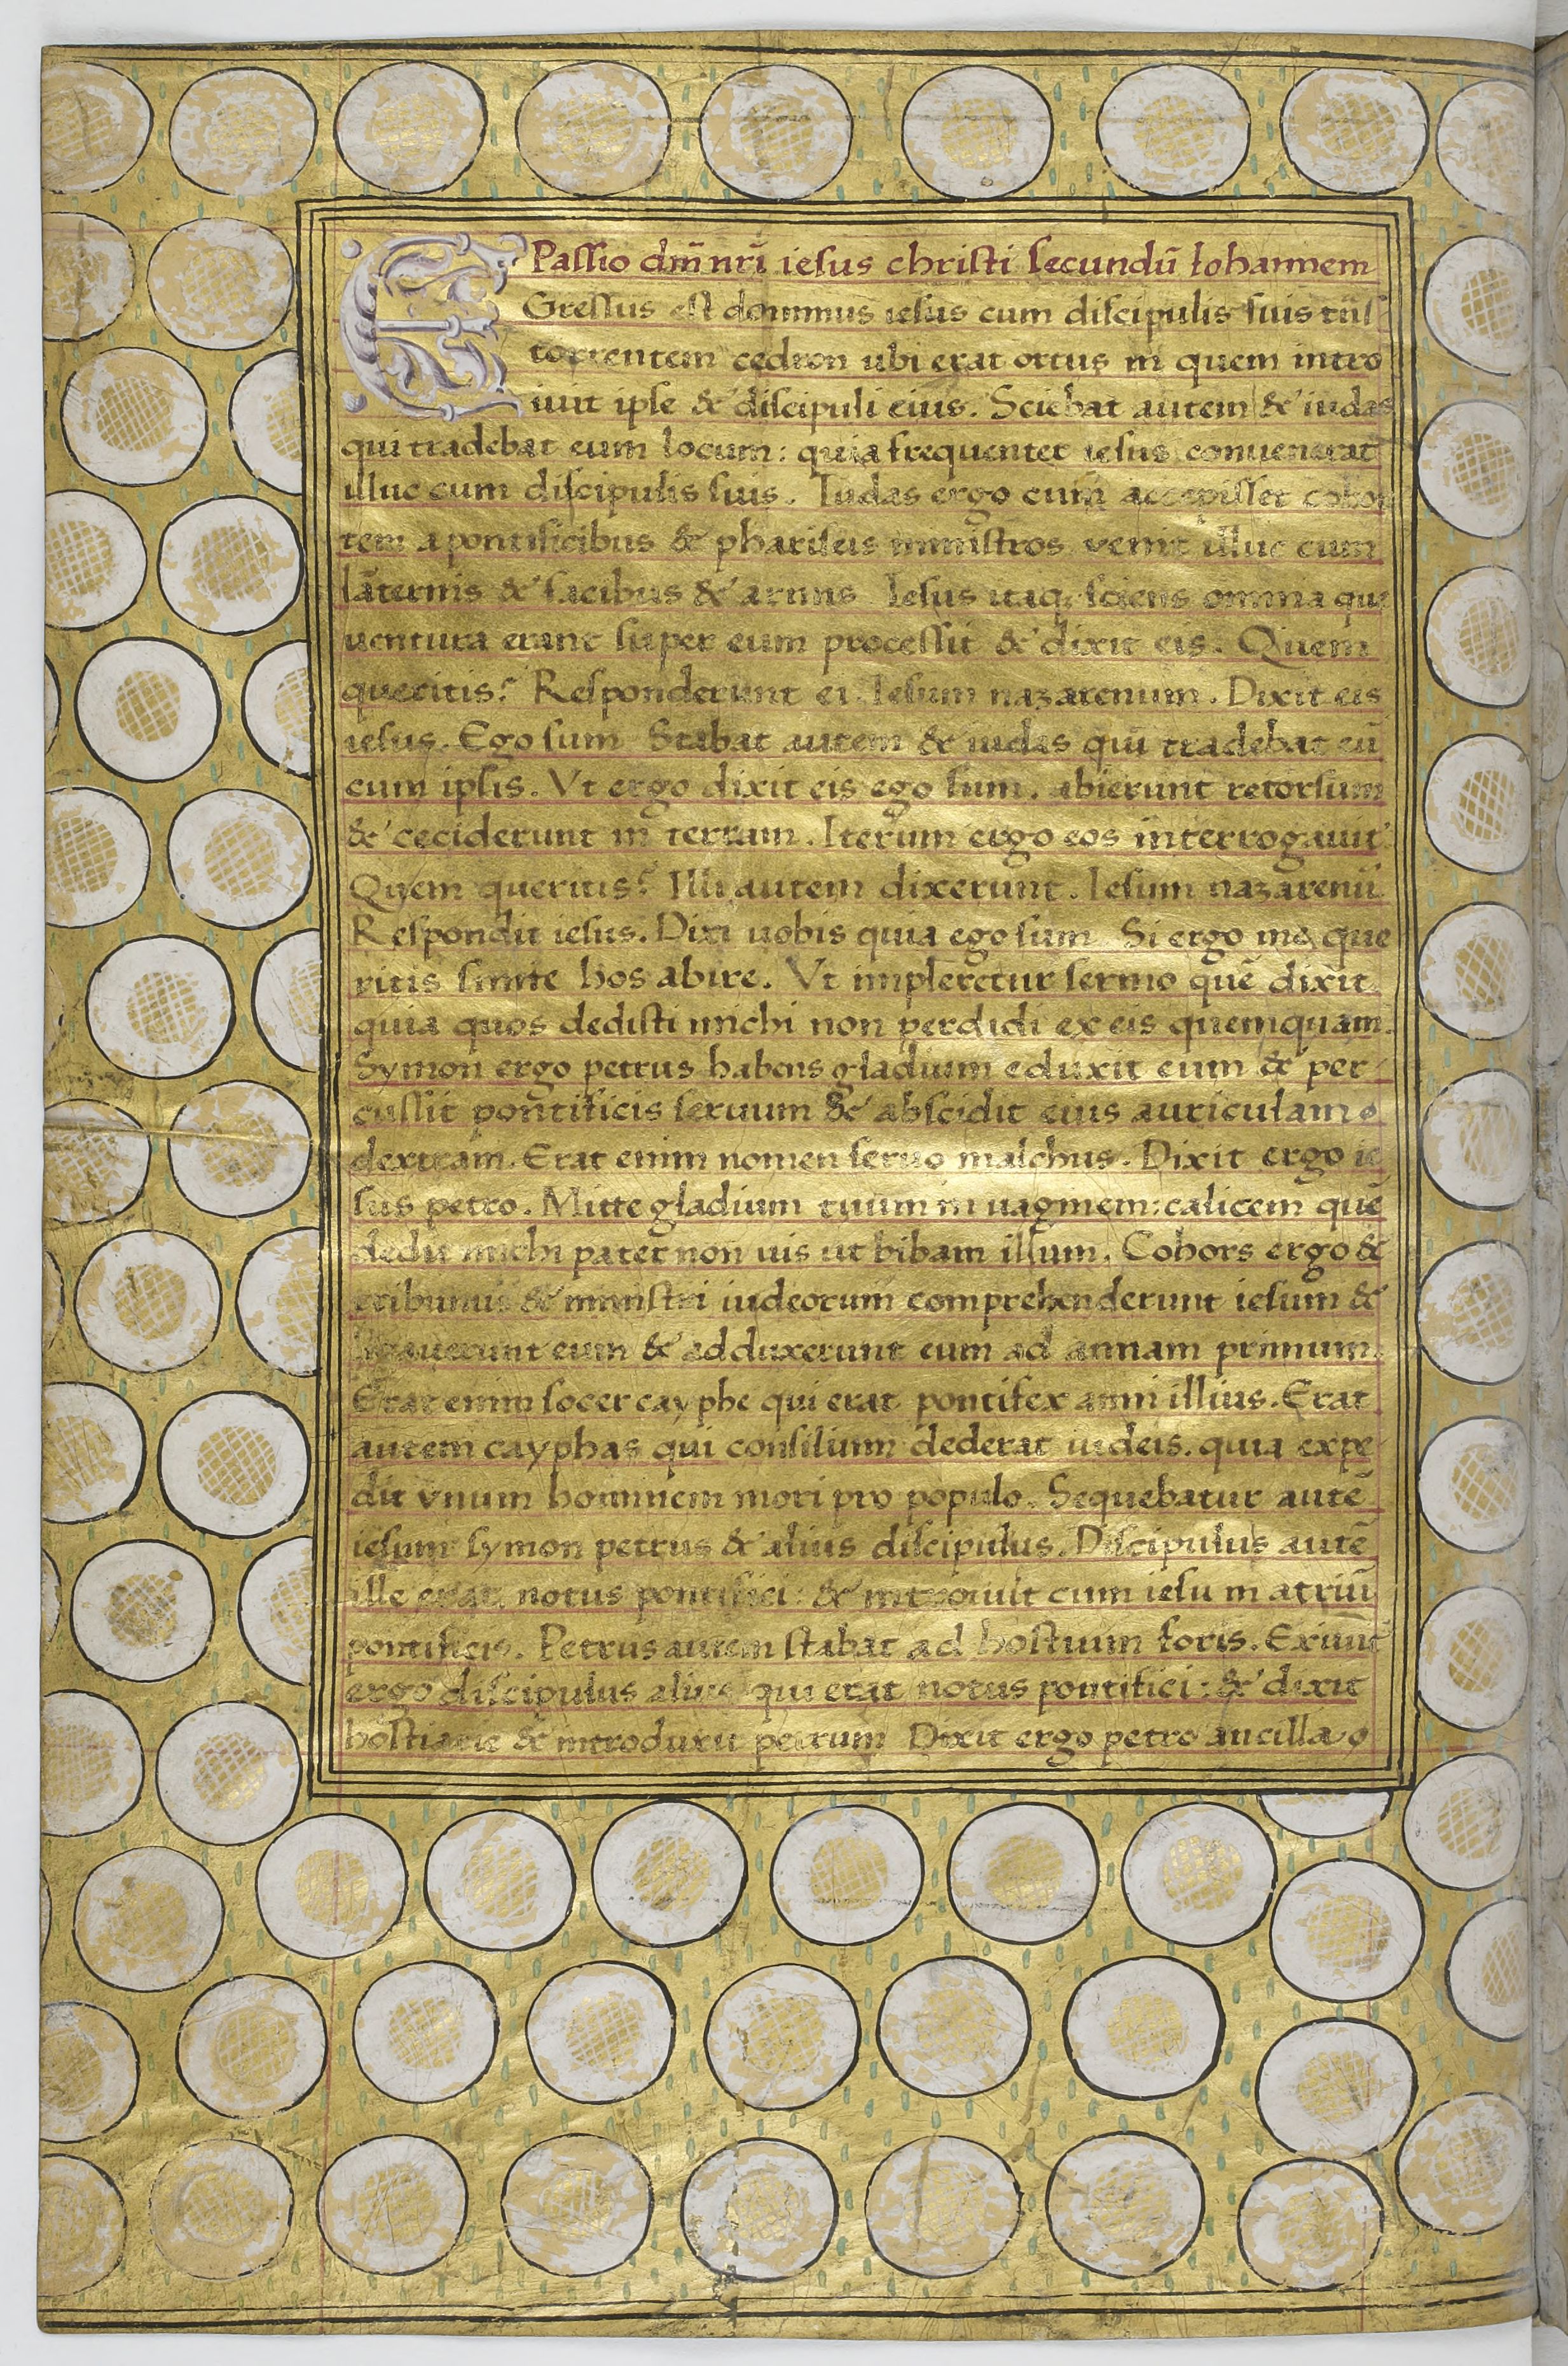 Passio dm̄ nr̄i iesus christi secundū Iohannem
EGressus est dominus iesus cum discipulis suis
torrentem cedron ubi erat ortus in quem intro
iuit ipse & discipuli eius. Sciebat autem & iudas
qui tradebat eum locum: quia frequenter iesus conuenerat
illuc cum discipulis suis. Iudas ergo cum accepisset cohor
tem a pontificibus & phariseis ministros venit illuc cum
lāternis & facibus & armis. Iesus itaq; sciens omnia que
uentura erant super eum processit & dixit eis. Quem
queritis? Responderunt ei. Iesum nazarenum. Dixit eis
iesus. Ego sum. Stabat autem & iudas qui tradebat eū
cum ipsis. Vt ergo dixit eis ego sum. abierunt retorsum
& ceciderunt in terram. Iterum ergo eos interrogauit.
Quem queritis? Illi autem dixerunt. Iesum nazarenū
Respondit iesus. Dixi uobis quia ego sum. Si ergo me que
ritis sinite hos abire. Vt impleretur sermo quē dixit
quia quos dedisti michi non perdidi ex eis quemquam.
Symon ergo petrus habens gladium eduxit eum & per
cussit pontificis seruum & abscidit eius auriculam
dextram. Erat enim nomen seruo malchus. Dixit ergo ie
sus petro. Mitte gladium tuum in uaginem: calicem quē
dedit michi pater non uis ut bibam illum. Cohors ergo &
tribunus & ministri iudeorum comprehenderunt iesum &
ligauerunt eum & adduxerunt eum ad annam primum.
Erat enim socer cayphe qui erat pontifex anni illius. Erat
autem cayphas qui consilium dederat iudeis. quia expe
dit vnum hominem mori pro populo. Sequebatur autē
iesum symon petrus & alius discipulus. Discipulus autē
ille erat notus pontifici: & introiuit cum iesu in atriū
pontificis. Petrus autem stabat ad hostium foris. Exiuit
ergo discipulus alius qui erat notus pontifici: & dixit
hostiarie & introduxit petrum. Dixit ergo petro ancilla